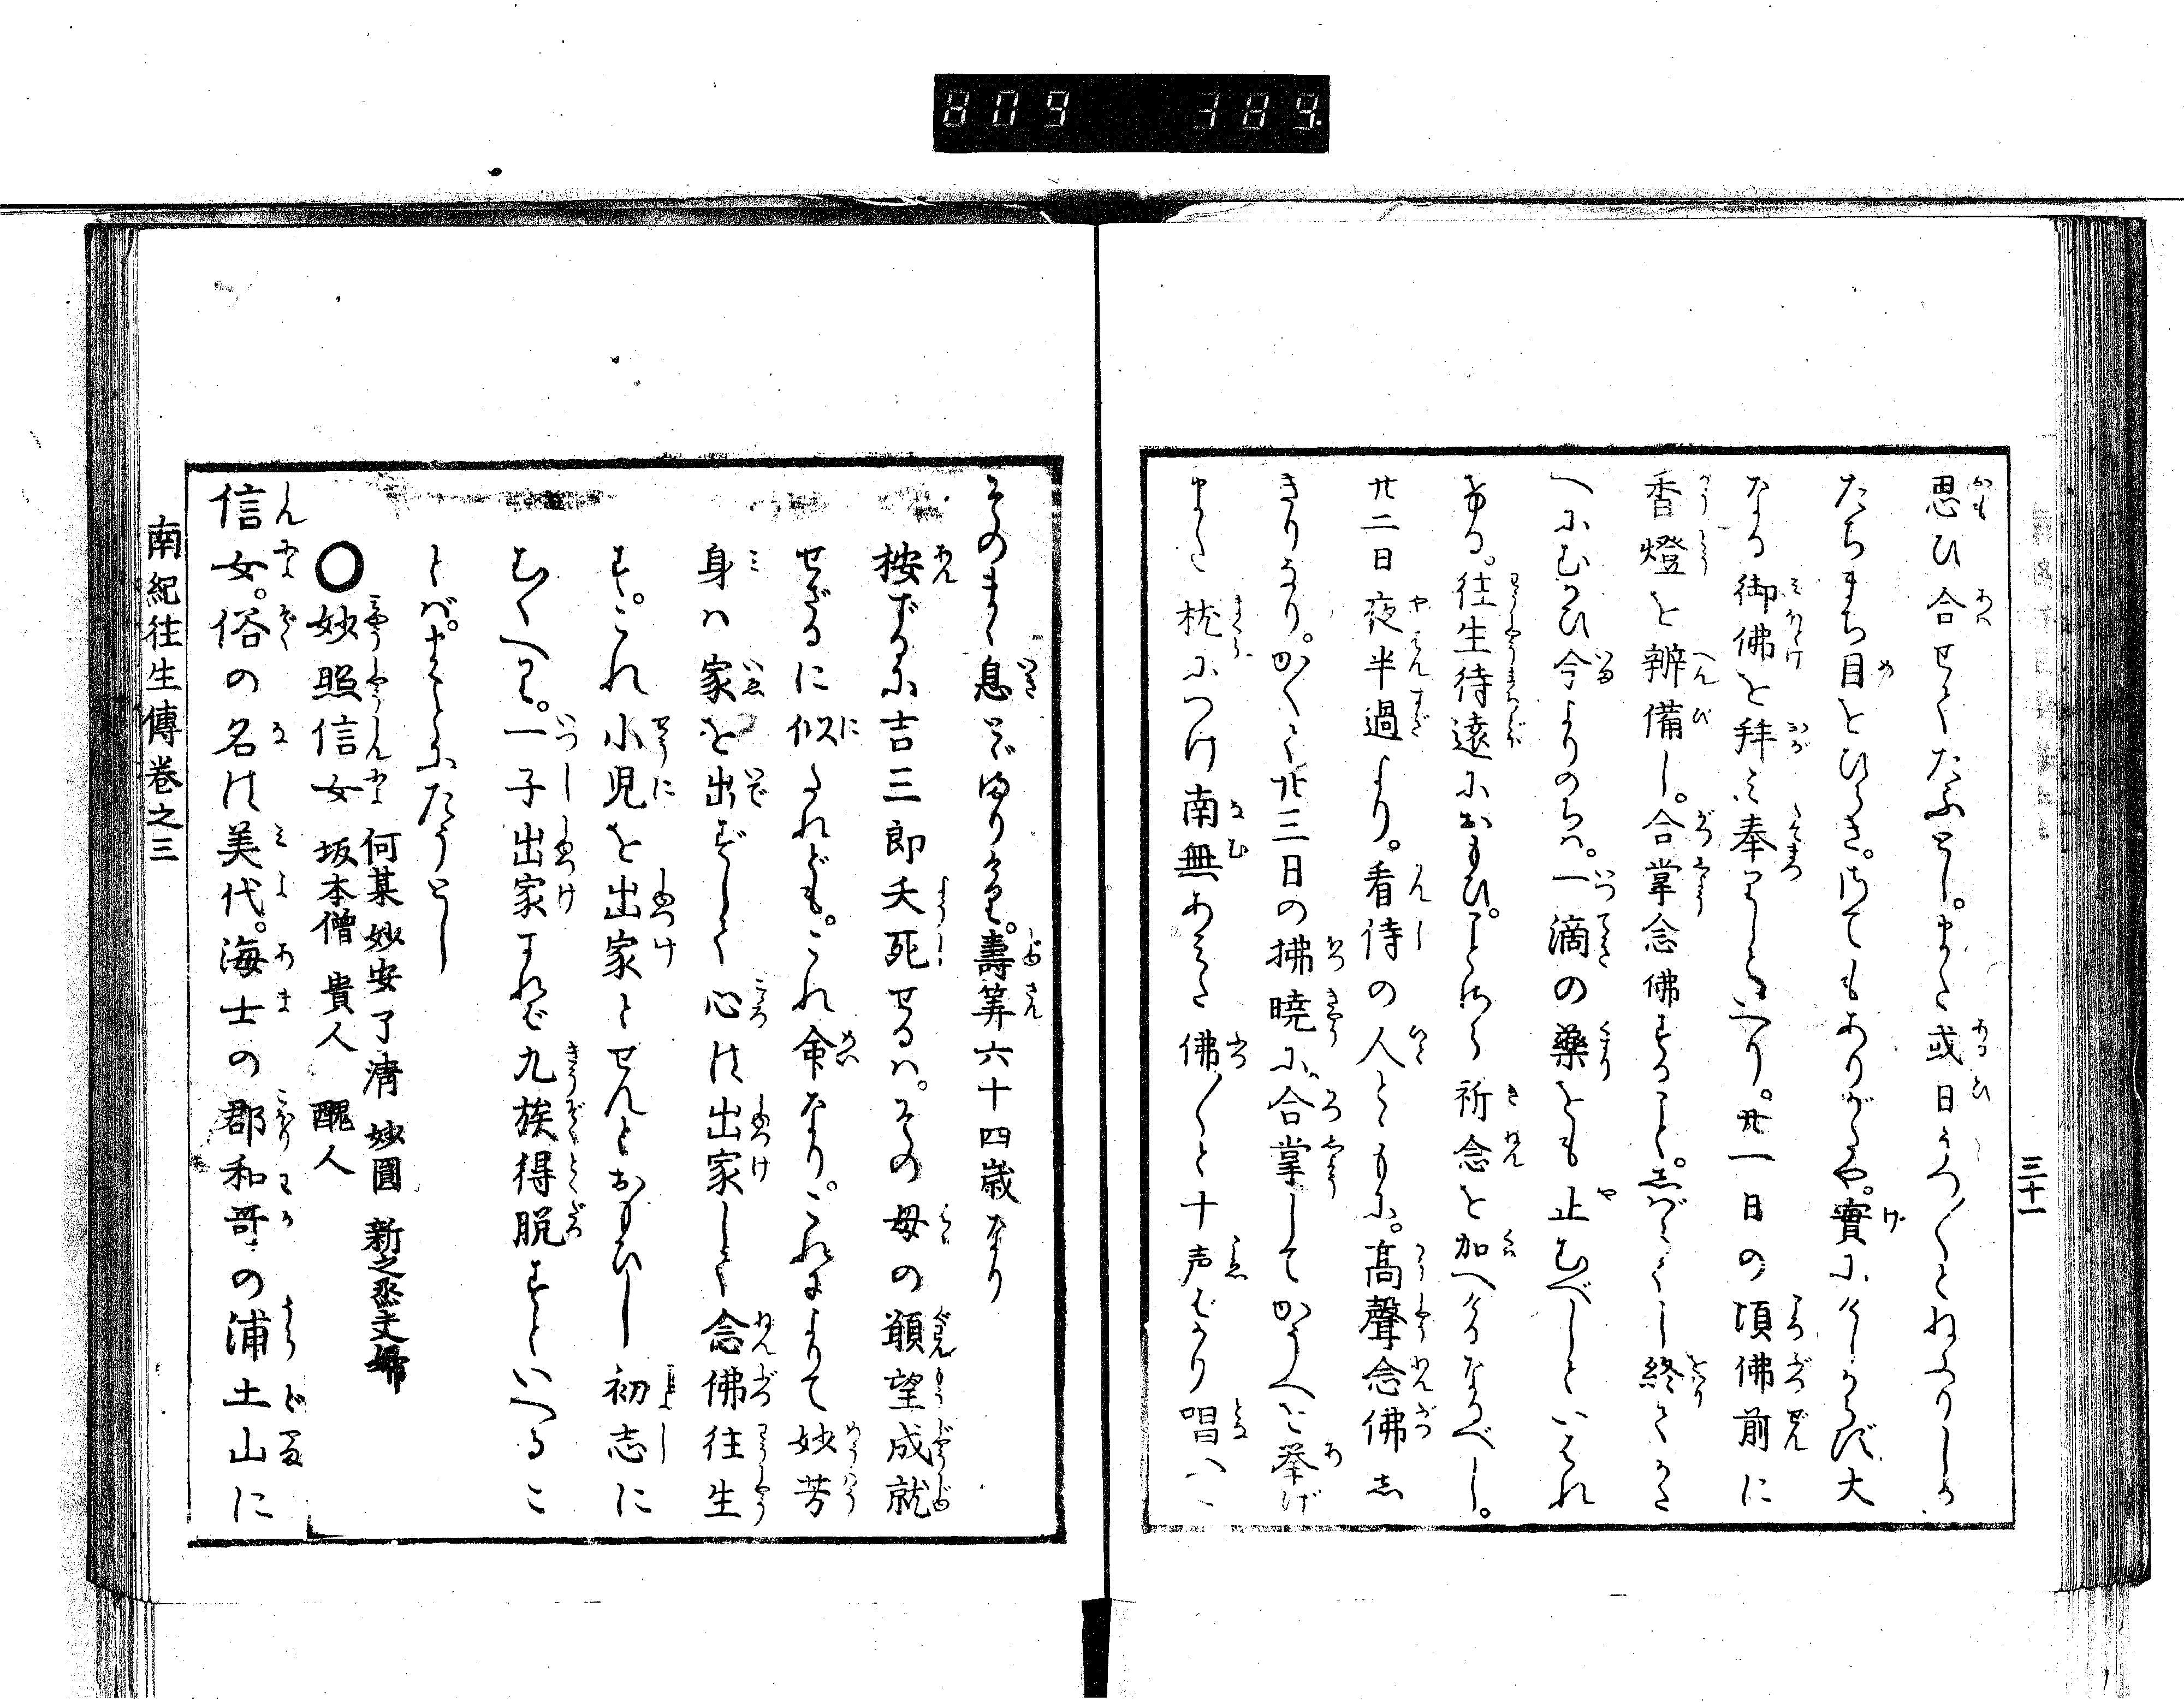 809 389
三十一
思ひ合せてたふとし。また或日うつ〳〵とねふりしか
たちまち目をひらき。さてもありがたや。實にけしからず大
なる御佛を拝ミ奉りしといへり。廿一日の頃佛前に
香燈を辨備し。合掌念佛すること。しばらくし終てかた
へにむかひ今よりのちハ。一滴の藥をも止むべしといはれ
ける。往生待遠におもひ。ことさら祈念を加へけるなるべし。
廿二日夜半過より。看侍の人とゝもに。高聲念佛し
きりなり。かくて廿三日の拂曉に。合掌してかうべを挙げ
また枕につけ南無あみた佛〳〵と十声ばかり唱へ
そのまゝ息とゞまりけり。壽算六十四歳なり
按ずるに吉三郎夭死せるハ。その母の願望成就
せざるに似たれども。これ命なり。これによりて妙芳
身ハ家を出ずして心は出家して念佛往生
す。これ小児を出家とせんとおもひし初志に
むくへり。一子出家すれば九族得脱すといへるこ
とば。まことにたうとし
〇妙照信女 何某 妙安 了清 妙圓 新之丞夫婦
坂本僧 貴人 醜人
信女。俗の名は美代。海士の郡和哥の浦土山に
南紀往生傳巻之三